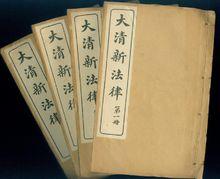 大清新法律
大清新法律
大清新法律
大清新法律
第一冊